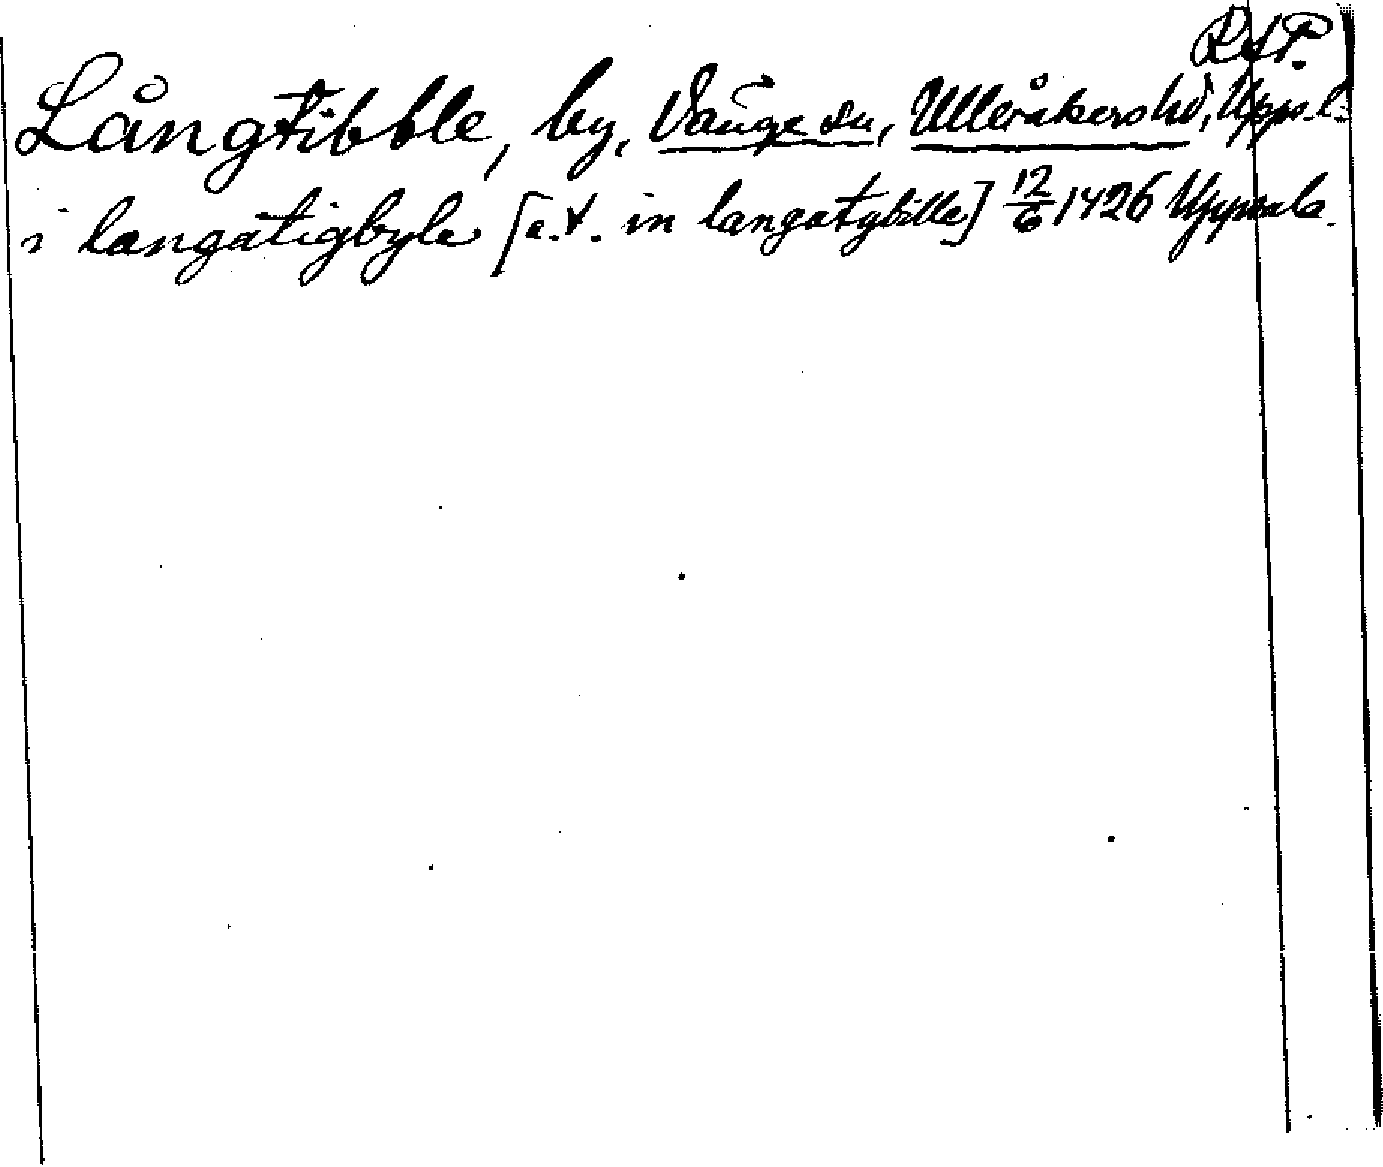 RAP.
Långtibble, by, Vänge sn, Ulleråkers hd, Uppsl.
i langatigbyle [a.t. in langatybille] 12/6 1426 Uppsala.